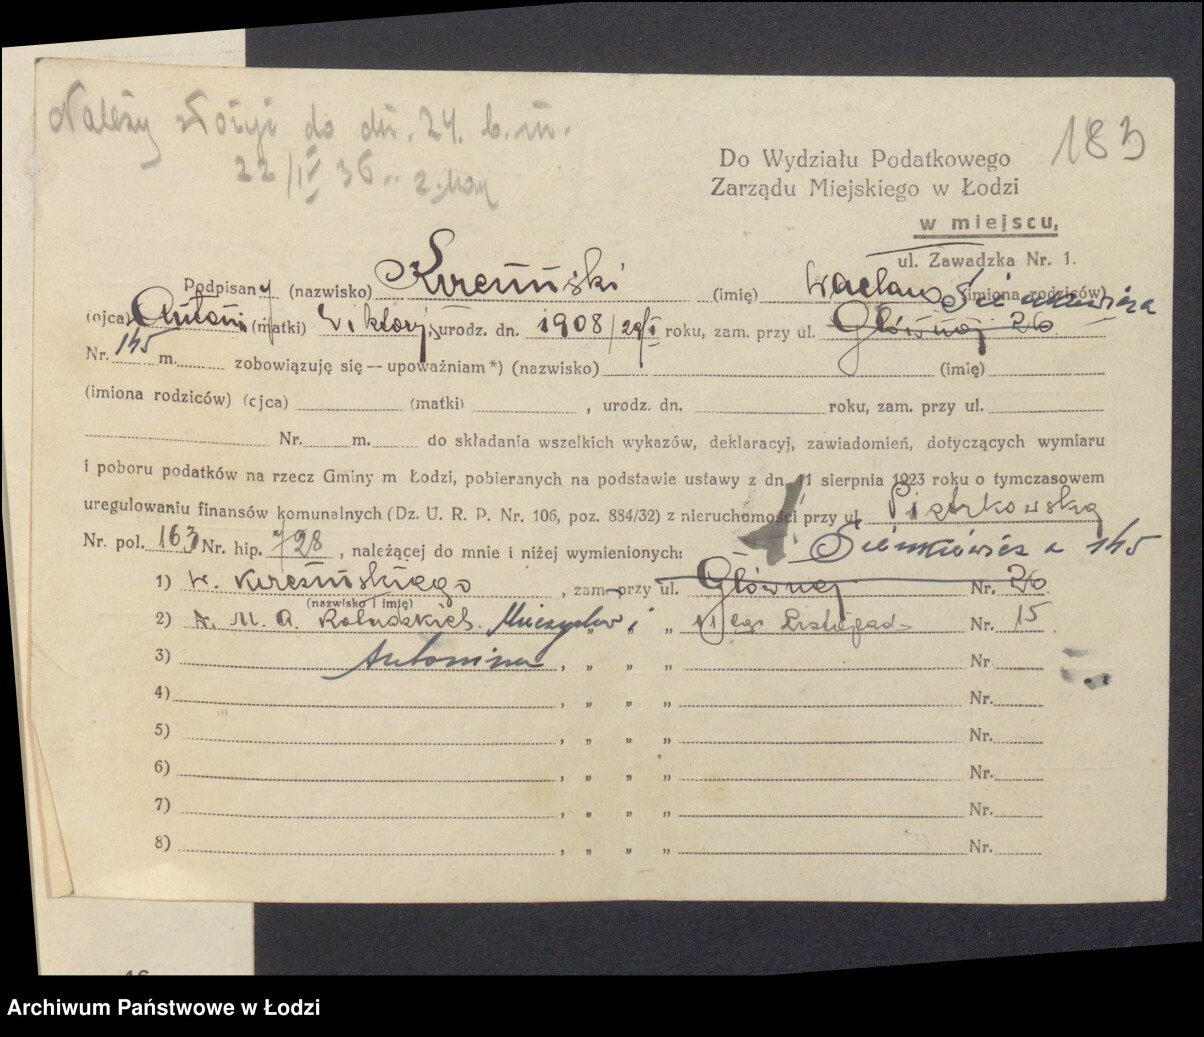 Należy złożyć do dn. 24. b.m.
22/IV 36
183
Do Wydziału Podatkowego
Zarządu Miejskiego w Łodzi
w miejscu,
ul. Zawadzka Nr. 1.
Podpisany (nazwisko) (imię) Wacław (imiona rodziców)
Sienkiewicza
(ojca) Antoni (matki) Wiktorj urodz. dn. 1908/29/I roku, zam. przy ul. Głównej 26
Nr. 145 m. zobowiązuję się — upoważniam *) (nazwisko) (imię)
(imiona rodziców) (ojca) (matki) , urodz. dn. roku, zam. przy ul.
Nr. m. do składania wszelkich wykazów, deklaracyj, zawiadomień, dotyczących wymiaru
i poboru podatków na rzecz Gminy m Łodzi, pobieranych na podstawie ustawy z dn. 11 sierpnia 1923 roku o tymczasowem
uregulowaniu finansów komunalnych (Dz. U. R. P. Nr. 106, poz. 884/32) z nieruchomości przy ul. Piotrkowska
Nr. pol. 163 Nr. hip. 728 , należącej do mnie i niżej wymienionych:
Sienkiewicza 145
1) W. , zam. przy ul. Głównej Nr. 26
(nazwisko i imię)
2) A. M. A. Mieczysław i „ „ 11 ego Listopada Nr. 15
3) Antonina , „ „ „ Nr
4) , „ „ „ Nr.
5) , „ „ „ Nr.
6) , „ „ „ Nr.
7) , „ „ „ Nr.
8) , „ „ „ Nr.
16
Archiwum Państwowe w Łodzi